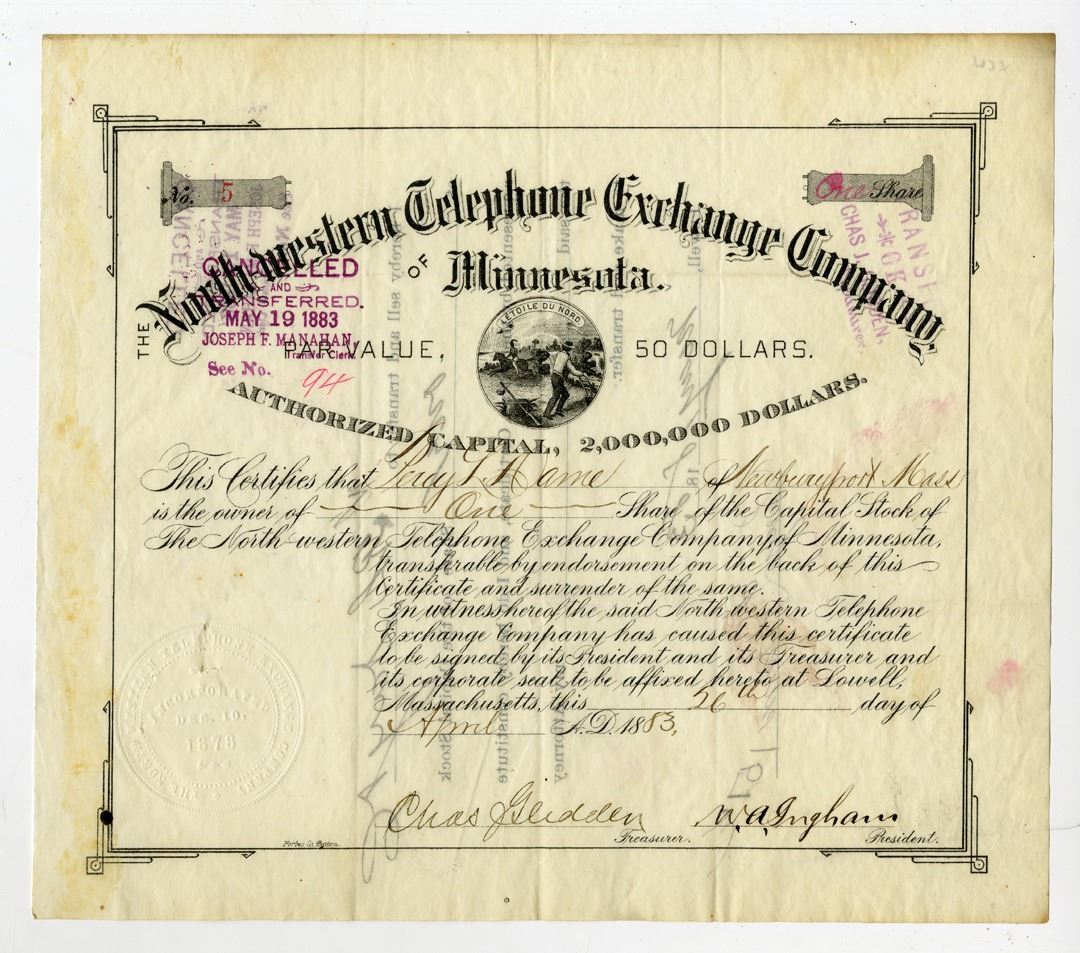 No. 5
One Share
THE North-western Telephone Exchange Company,
OF
Minnesota.
L'ÉTOILE DU NORD
CANCELLED
AND
TRANSFERRED.
MAY 19 1883
JOSEPH F. MANAHAN,
Transfer Clerk.
See No. 94
PAR VALUE, 50 DOLLARS.
AUTHORIZED CAPITAL, 2,000,000 DOLLARS.
This Certifies that Percy of Newburyport Mass
is the owner of One Share of the Capital Stock of
The North-western Telephone Exchange Company, of Minnesota,
transferable by endorsement on the back of this
Certificate and surrender of the same.
In witness hereof the said North-western Telephone
Exchange Company has caused this certificate
to be signed by its President and its Treasurer and
its corporate seal to be affixed hereto at Lowell,
Massachusetts, this 26th day of
April A.D. 1883.
INCORPORATED
DEC. 10,
1878
Chas J Glidden W. A. Ingham
Treasurer. President.
Forbes Co. Boston.